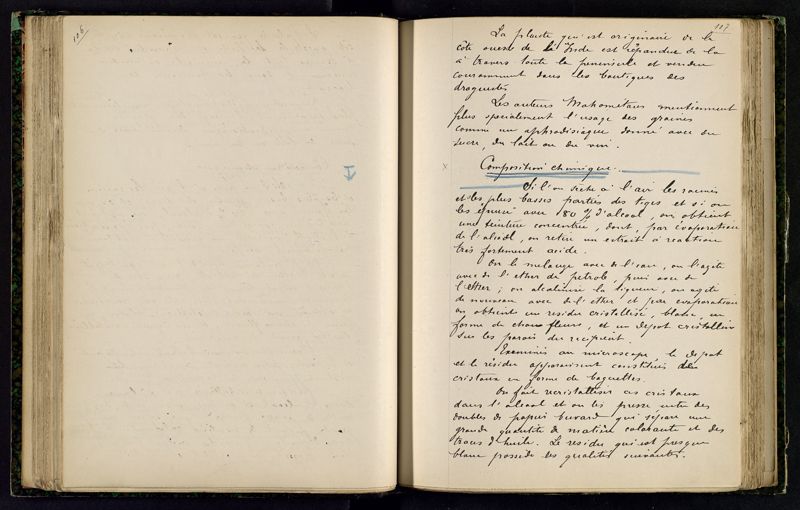 106
107
La plante qui est originaire de la
côte ouest de l'Inde est répandue de la
à travers toute la peninsule et vendue
couramment dans les boutiques des
droguistes.
Les auteurs Mahometans mentionnent
plus specialement l'usage des graines
comme un aphrodisiaque donné avec du
sucre, du lait ou du vin.
x Composition chimique.
Si l'on sèche à l'air les racines
et les plus basses parties des tiges et si on
les épuise avec 80 % d'alcool, on obtient
une teinture concentrée, dont, par évaporation
de l'alcool, on retire un extrait à reaction
très fortement acide.
On le melange avec de l'eau, on l'agite
avec de l'ether de petrole, puis avec de
l'ether; on alcalinise la liqueur, on agite
de nouveau avec de l'ether et par evaporation
on obtient un residu cristallisé, blanc, en
forme de choux fleurs, et un depot cristallin
sur les parois du recipient.
Examinés au microscope, le depot
et le résidu apparaissent constitués de
cristaux en forme de baguettes.
On fait recristalliser ces cristaux
dans l'alcool et on les presse entre des
doubles de papier buvard qui sépare une
grande quantité de matière colorante et des
traces d'huile. Le residu qui est presque
blanc possède les qualités suivantes.